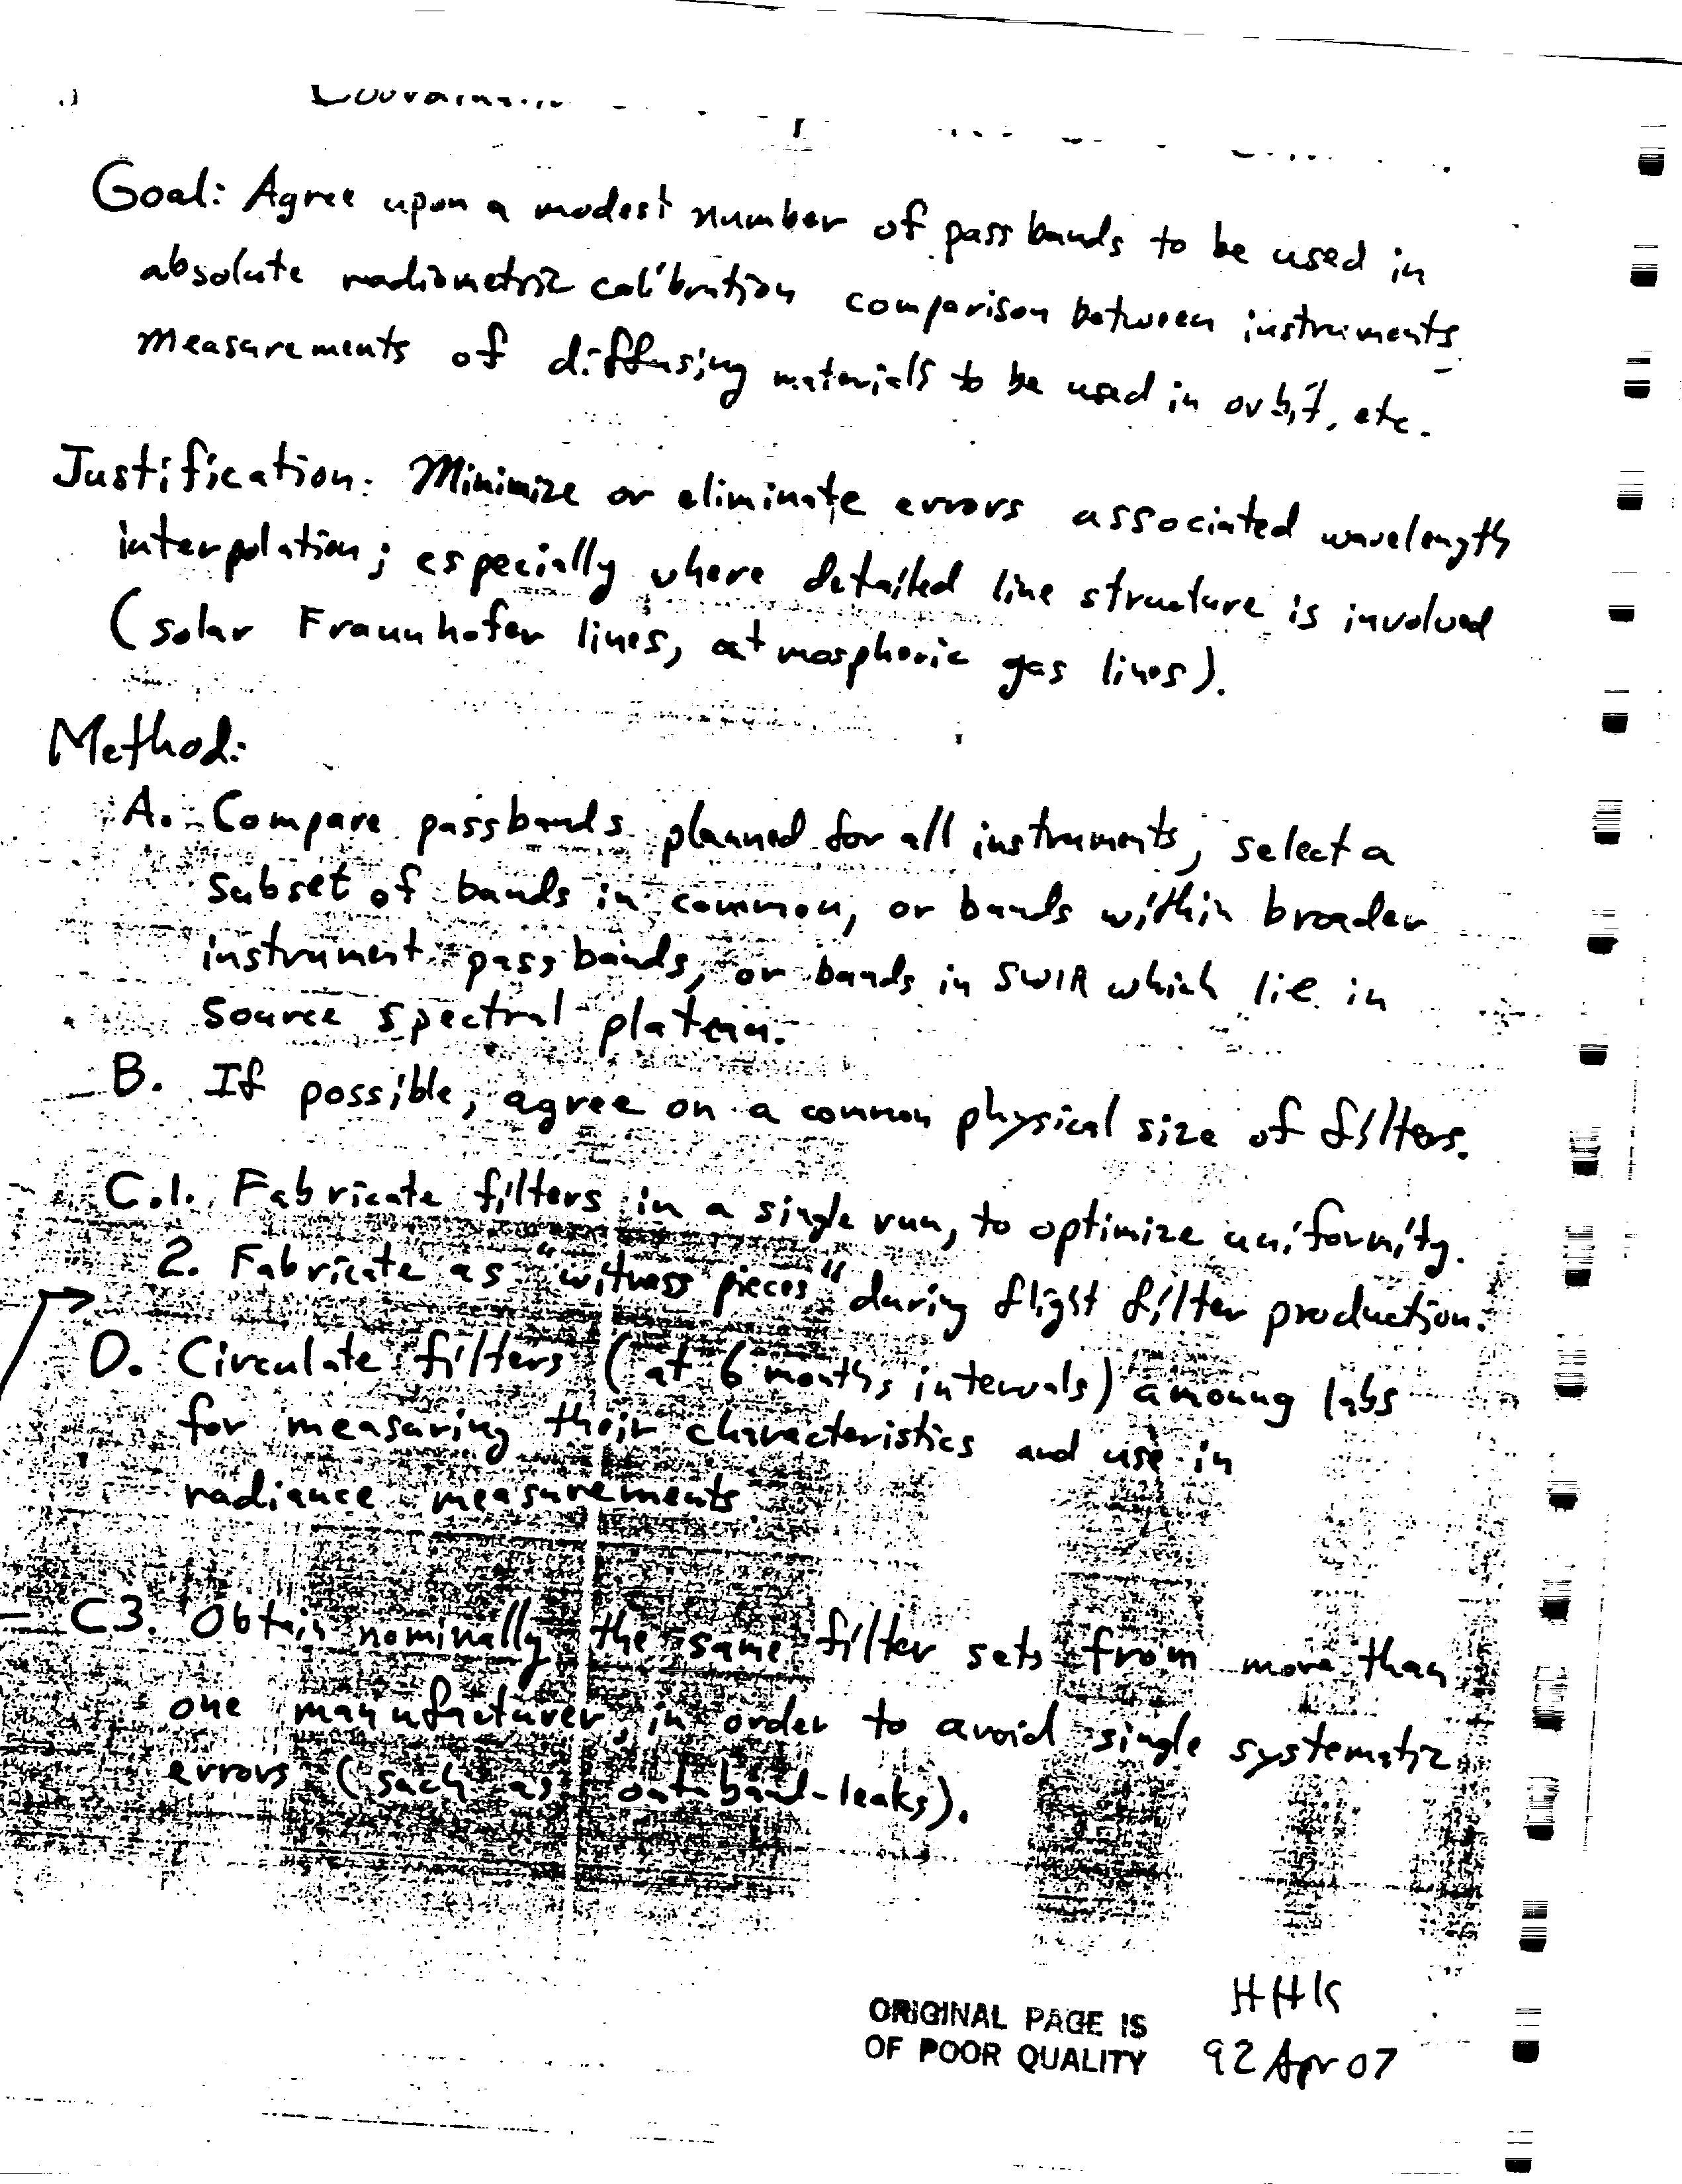 Goal: Agree upon a modest number of passbands to be used in
absolute radiometric calibration comparison between instruments
measurements of diffusing materials to be used in orbit, etc.
Justification: Minimize or eliminate errors associated wavelength
interpolation; especially where detailed line structure is involved
(solar Fraunhofer lines, atmospheric gas lines).
Method:
A. Compare passbands planned for all instruments, select a
subset of bands in common, or bands within broader
instrument passbands, or bands in SWIR which lie in
source spectral plateau.
B. If possible, agree on a common physical size of filters.
C.1. Fabricate filters in a single run, to optimize uniformity.
2. Fabricate as "witness pieces" during flight filter production.
D. Circulate filters (at 6 months intervals) amoung labs
for measuring their characteristics and use in
radiance measurements
C3. Obtain nominally the same filter sets from more than
one manufacturer, in order to avoid single systematic
errors (such as out-band-leaks).
HHK
ORIGINAL PAGE IS
OF POOR QUALITY
92 Apr 07